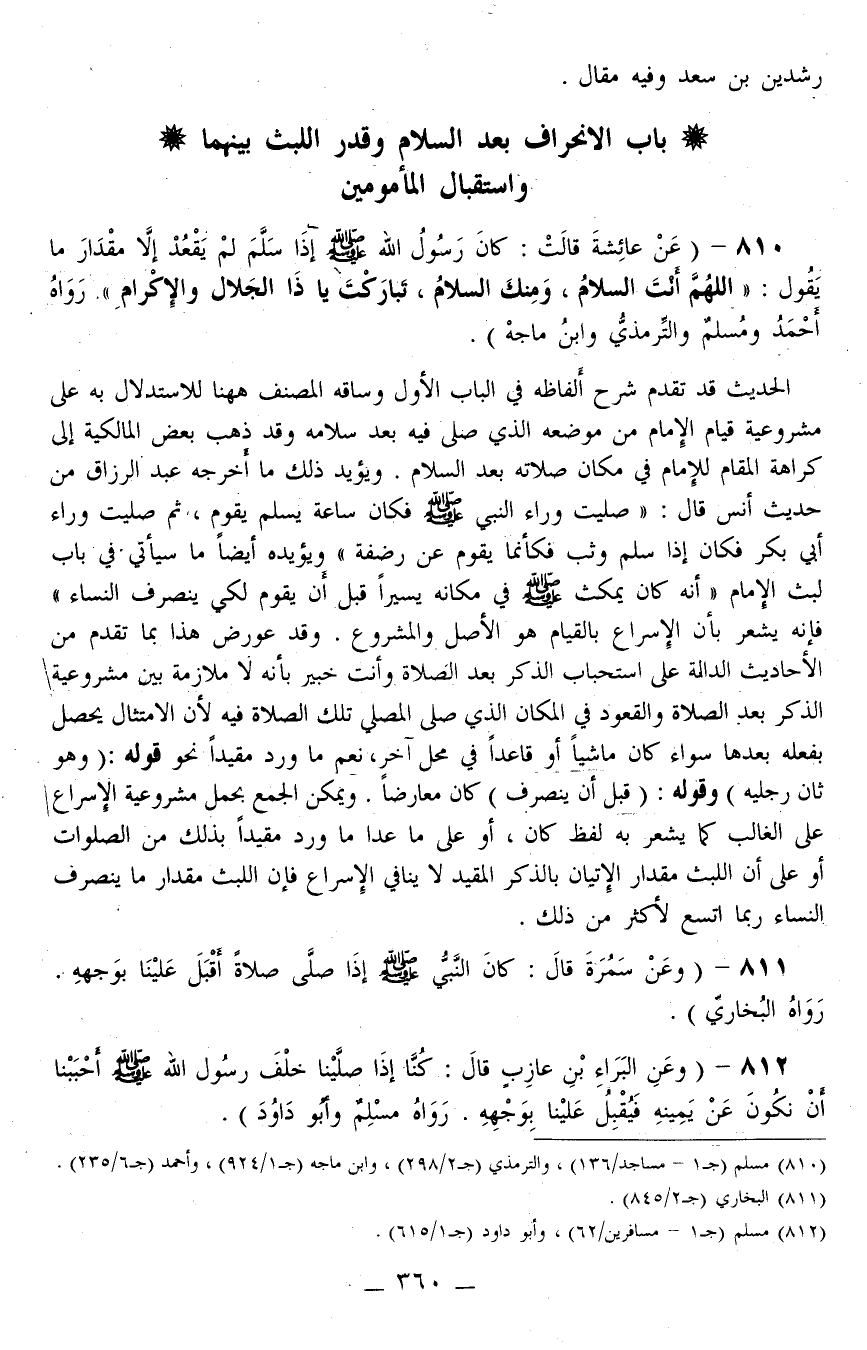 رشدين بن سعد وفيه مقال .
✹ باب الانحراف بعد السلام وقدر اللبث بينهما ✹
واستقبال المأمومين
٨١٠ – ( عَنْ عائِشةَ قالَتْ : كانَ رَسُولُ الله ﷺ إذَا سَلَّمَ لمْ يَقْعُدْ إلَّا مقْدَارَ ما
يَقُول : « اللهُمَّ أنْتَ السلامُ ، وَمِنكَ السلامُ ، تَبارَكْتَ يا ذَا الجَلال والإكْرام ». رَوَاهُ
أَحْمَدُ ومُسلمٌ والتِّرمذيُّ وابنُ ماجهْ ) .
الحديث قد تقدم شرح أَلفاظه في الباب الأول وساقه المصنف ههنا للاستدلال به على
مشروعية قيام الإِمام من موضعه الذي صلى فيه بعد سلامه وقد ذهب بعض المالكية إلى
كراهة المقام للإِمام في مكان صلاته بعد السلام . ويؤيد ذلك ما أخرجه عبد الرزاق من
حديث أنس قال : « صليت وراء النبي ﷺ فكان ساعة يسلم يقوم ، ثم صليت وراء
أبي بكر فكان إذا سلم وثب فكأنما يقوم عن رضفة » ويؤيده أيضاً ما سيأتي في باب
لبث الإِمام « أنه كان يمكث ﷺ في مكانه يسيراً قبل أَن يقوم لكي ينصرف النساء »
فإنه يشعر بأن الإسراع بالقيام هو الأصل والمشروع . وقد عورض هذا بما تقدم من
الأحاديث الدالة على استحباب الذكر بعد الصلاة وأنت خبير بأنه لا ملازمة بين مشروعية
الذكر بعد الصلاة والقعود في المكان الذي صلى المصلي تلك الصلاة فيه لأن الامتثال يحصل
بفعله بعدها سواء كان ماشياً أو قاعداً في محل آخر، نعم ما ورد مقيداً نحو قوله :( وهو
ثان رجليه ) وقوله : ( قبل أن ينصرف ) كان معارضاً . ويمكن الجمع بحمل مشروعية الإسراع
على الغالب كما يشعر به لفظ كان ، أو على ما عدا ما ورد مقيداً بذلك من الصلوات
أو على أن اللبث مقدار الإتيان بالذكر المقيد لا ينافي الإسراع فإن اللبث مقدار ما ينصرف
النساء ربما اتسع لأكثر من ذلك .
٨١١ – ( وعَنْ سَمُرَةَ قالَ : كانَ النَّبيُّ ﷺ إذَا صلَّى صلاةً أَقْبَلَ عَليْنَا بوَجههِ .
رَوَاهُ البُخاريّ ) .
٨١٢ – ( وعَنِ البَرَاءِ بْنِ عازِبٍ قالَ : كُنَّا إذَا صلَّيْنا خلْفَ رسُول الله ﷺ أَحْبَبْنا
أَنْ نكُونَ عَنْ يَمِينهِ فَيُقْبِلُ عَليْنا بِوَجْههِ . رَوَاهُ مسْلِمٌ وأَبُو دَاوُدَ ) .
(٨١٠) مسلم (جـ١ – مساجد/١٣٦) ، والترمذي (جـ٢٩٨/٢) ، وابن ماجه (جـ٩٢٤/١) ، وأحمد (جـ٢٣٥/٦) .
(٨١١) البخاري (جـ٨٤٥/٢) .
(٨١٢) مسلم (جـ١ – مسافرين/٦٢) ، وأبو داود (جـ٦١٥/١) .
– ٣٦٠ –